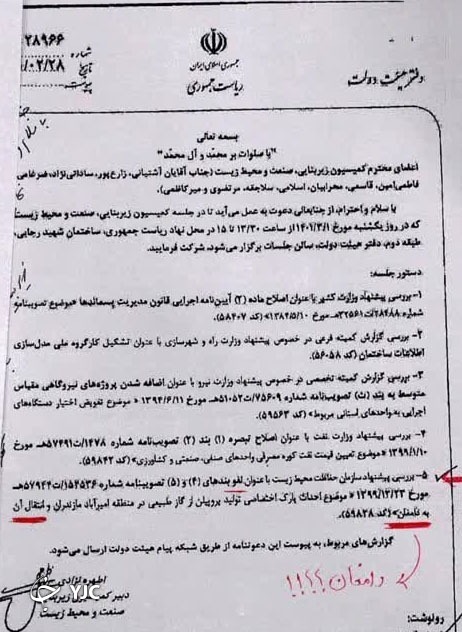 ۲۸۹۶۶
شماره
/۰۲/۲۸
تاریخ
پیوست
جمهوری اسلامی ایران
ریاست جمهوری
دفتر هیئت دولت
بسمه تعالی
"با صلوات بر محمد و آل محمد"
اعضای محترم کمیسیون زیربنایی، صنعت و محیط زیست (جناب آقایان آشتیانی، زارع‌پور، ساداتی‌نژاد، ضرغامی
فاطمی‌امین، قاسمی، محرابیان، اسلامی، سلاجقه، مرتضوی و میرکاظمی).
با سلام و احترام، از جنابعالی دعوت به عمل می‌آید تا در جلسه کمیسیون زیربنایی، صنعت و محیط زیست
که در روز یکشنبه مورخ ۱۴۰۱/۳/۱ از ساعت ۱۳/۳۰ تا ۱۵ در محل نهاد ریاست جمهوری، ساختمان شهید رجایی،
طبقه دوم، دفتر هیئت دولت، سالن جلسات برگزار می‌شود، شرکت فرمایید.
دستور جلسه:
۱- بررسی پیشنهاد وزارت کشور با عنوان اصلاح ماده (۲) آیین‌نامه اجرایی قانون مدیریت پسماندها «موضوع تصویبنامه
شماره ۲۸۴۸۸/ت۳۲۵۶۱هـ مورخ ۱۳۸۴/۵/۱۰» (کد ۵۸۴۰۷).
۲- بررسی گزارش کمیته فرعی در خصوص پیشنهاد وزارت راه و شهرسازی با عنوان تشکیل کارگروه ملی مدل‌سازی
اطلاعات ساختمان (کد ۵۶۰۵۸).
۳- بررسی گزارش کمیته تخصصی در خصوص پیشنهاد وزارت نیرو با عنوان اضافه شدن پروژه‌های نیروگاهی مقیاس
متوسط به بند (ث) تصویبنامه شماره ۷۵۶۰۹/ت۵۱۰۵۲هـ مورخ ۱۳۹۴/۶/۱۱ «موضوع تفویض اختیار دستگاه‌های
اجرایی به واحدهای استانی مربوط» (کد ۵۹۵۶۳).
۴- بررسی پیشنهاد وزارت نفت با عنوان اصلاح تبصره (۱) بند (۲) تصویبنامه شماره ۱۴۷۸/ت۵۷۴۹۱هـ مورخ
۱۳۹۹/۱/۱۰ «موضوع تعیین قیمت نفت کوره مصرفی واحدهای صنعتی، صنفی و کشاورزی» (کد ۵۹۸۴۲).
۵- بررسی پیشنهاد سازمان حفاظت محیط زیست با عنوان لغو بندهای (۴) و (۵) تصویبنامه شماره ۱۵۴۵۳۶/ت۵۷۹۴۴هـ
مورخ ۱۳۹۹/۱۲/۲۳ «موضوع احداث پارک اختصاصی تولید پروپیلن از گاز طبیعی در منطقه امیرآباد مازندران و انتقال آن
به دامغان» (کد ۵۹۸۳۸).
گزارش‌های مربوط، به پیوست این دعوتنامه از طریق شبکه پیام هیئت دولت ارسال می‌شود.
دامغان؟؟!!!
دبیر کمیسیون
صنعت و محیط زیست
YJC
رونوشت: